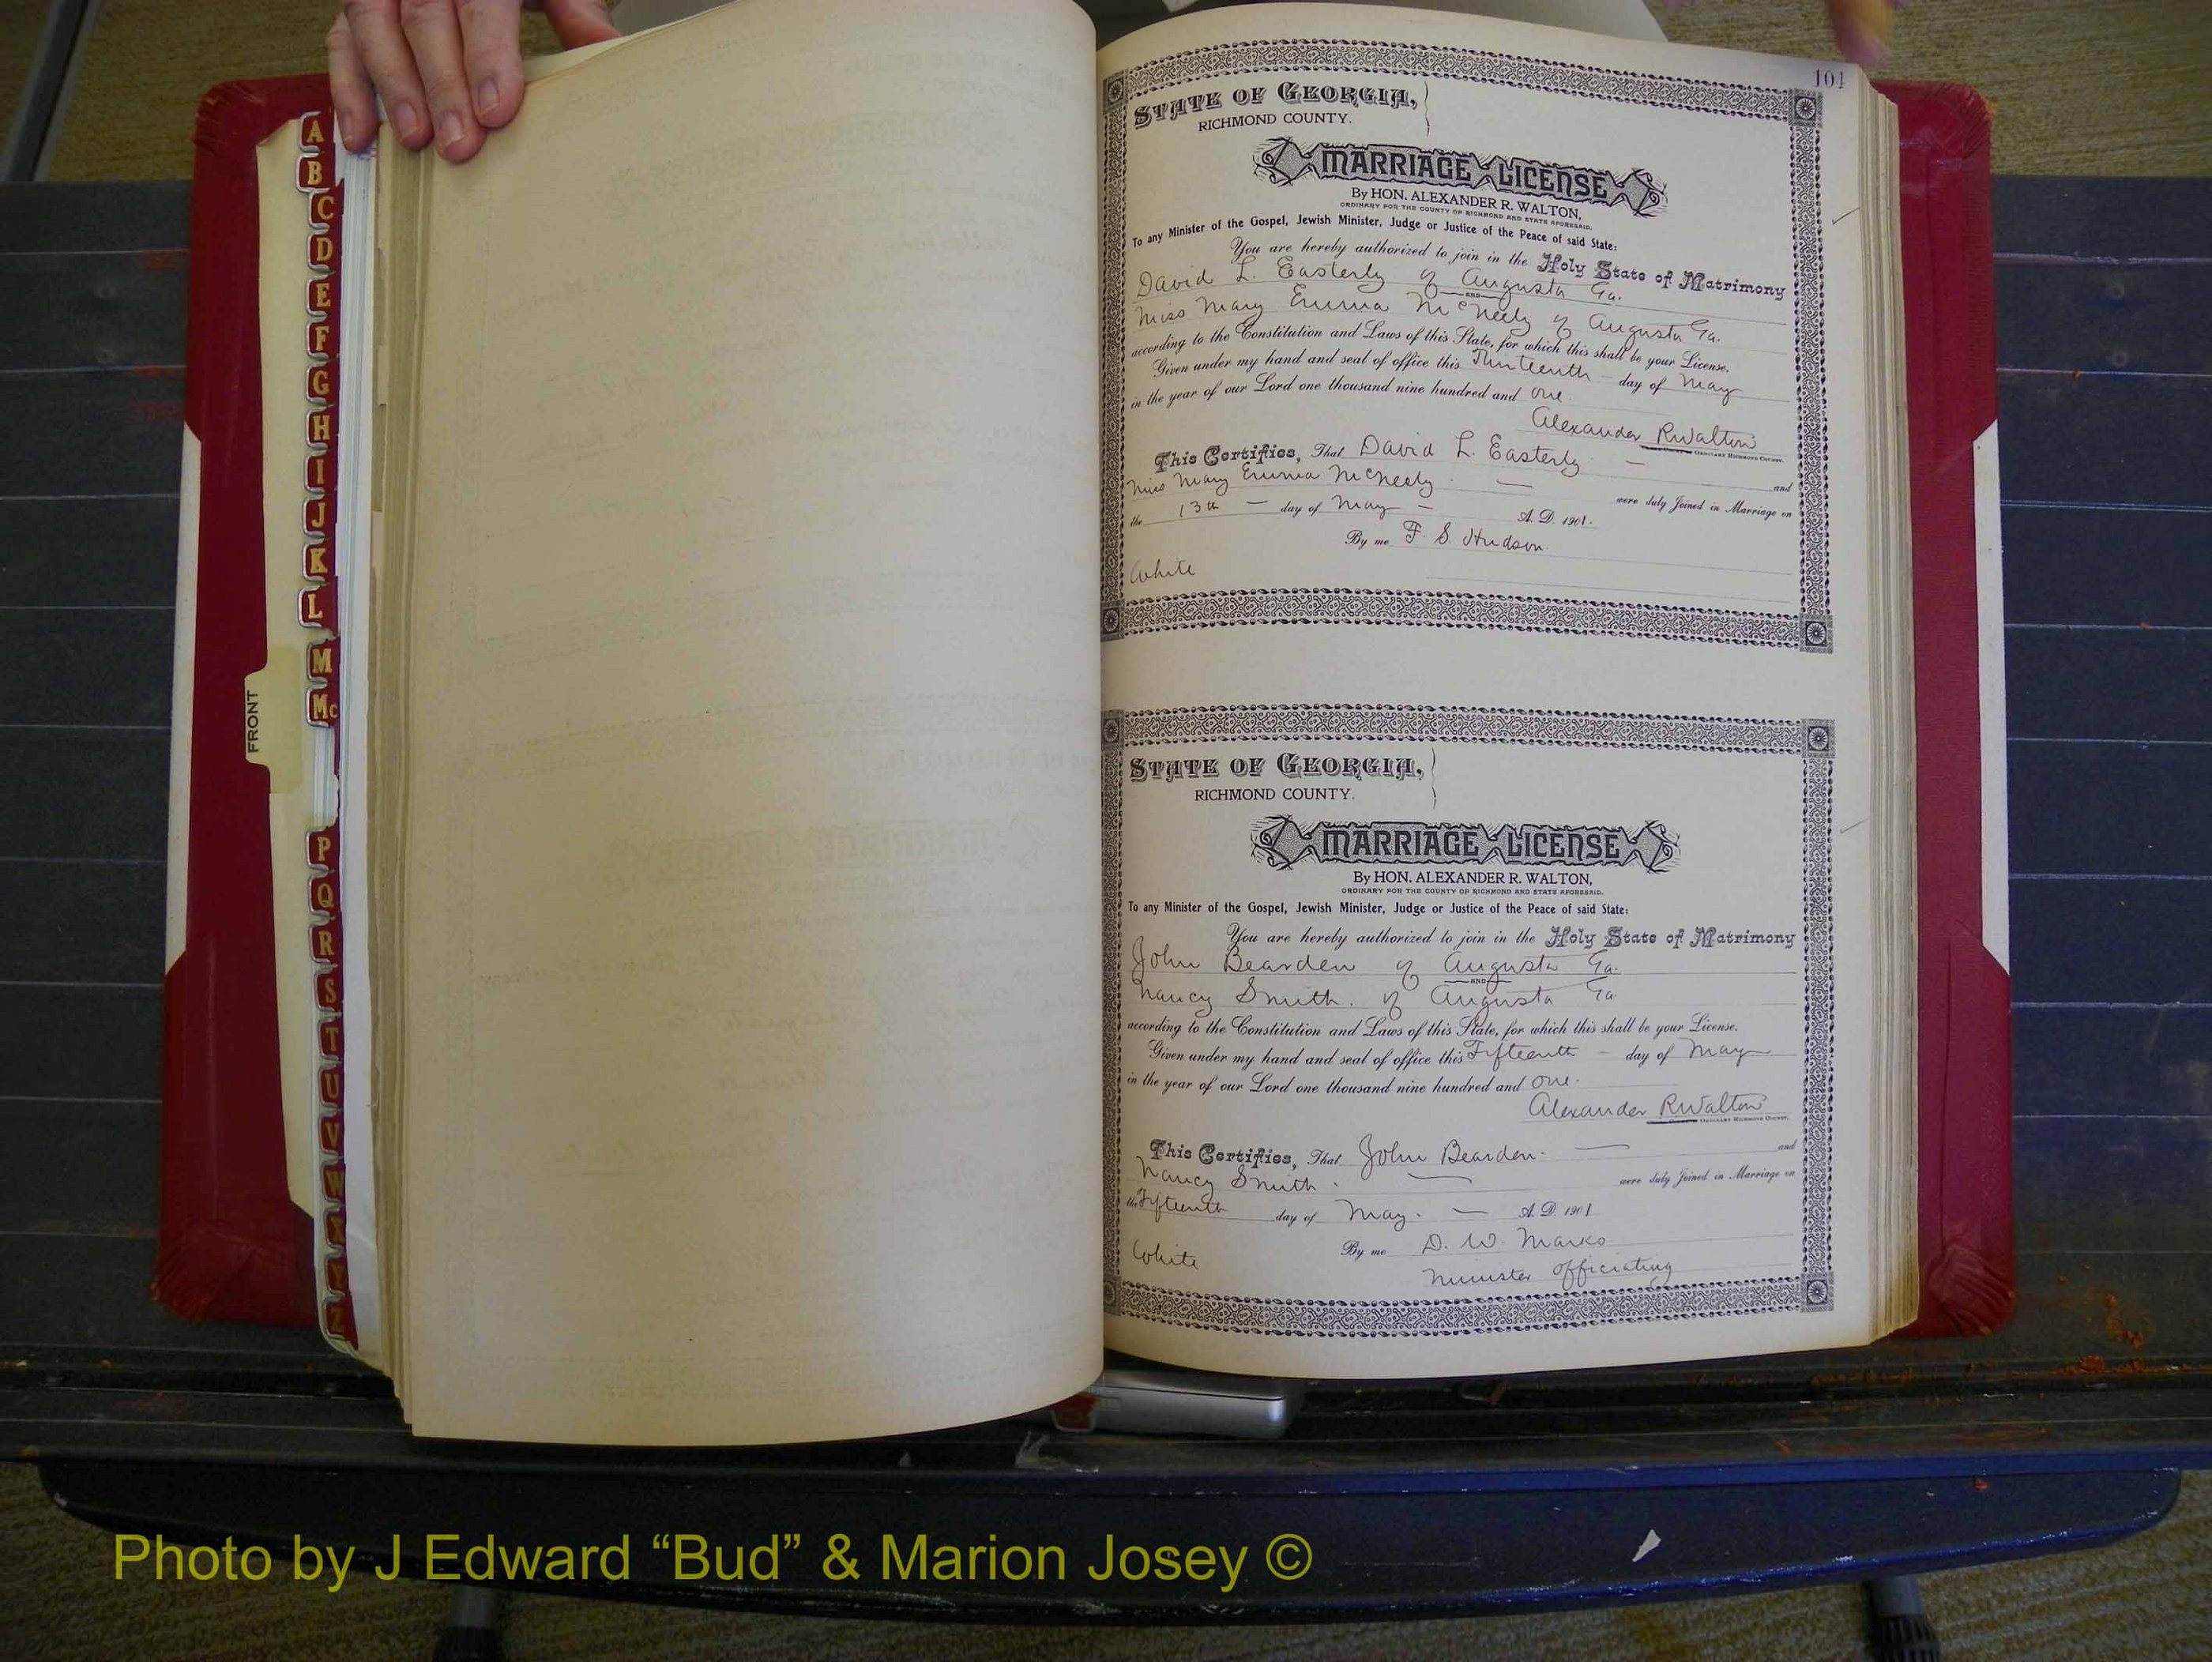 A
B
C
D
E
F
G
H
I
J
K
L
M
Mc
P
Q
R
S
T
U
V
W
X
Y
Z
FRONT
104
STATE OF GEORGIA,
RICHMOND COUNTY.
MARRIAGE LICENSE
By HON. ALEXANDER R. WALTON,
ORDINARY FOR THE COUNTY OF RICHMOND AND STATE AFORESAID.
To any Minister of the Gospel, Jewish Minister, Judge or Justice of the Peace of said State:
You are hereby authorized to join in the Holy State of Matrimony
David L. Easterly of Augusta Ga.
AND
Miss Mary Emma McNeely of Augusta Ga.
according to the Constitution and Laws of this State, for which this shall be your License.
Given under my hand and seal of office this Thirteenth – day of May
in the year of our Lord one thousand nine hundred and one.
Alexander R Walton
ORDINARY RICHMOND COUNTY.
This Certifies, That David L. Easterly — and
Miss Mary Emma McNeely — were duly Joined in Marriage on
the 13th — day of May — A. D. 1901.
By me F. S. Hudson.
White
STATE OF GEORGIA,
RICHMOND COUNTY.
MARRIAGE LICENSE
By HON. ALEXANDER R. WALTON,
ORDINARY FOR THE COUNTY OF RICHMOND AND STATE AFORESAID.
To any Minister of the Gospel, Jewish Minister, Judge or Justice of the Peace of said State:
You are hereby authorized to join in the Holy State of Matrimony
John Bearden of Augusta Ga.
AND
Nancy Smith. of Augusta Ga
according to the Constitution and Laws of this State, for which this shall be your License.
Given under my hand and seal of office this Fifteenth – day of May
in the year of our Lord one thousand nine hundred and one.
Alexander R Walton
ORDINARY RICHMOND COUNTY.
This Certifies, That John Bearden. — and
Nancy Smith. — were duly Joined in Marriage on
the Fifteenth day of May. — A. D. 1901
By me D. W. Marks
White
Minister officiating
Photo by J Edward “Bud” & Marion Josey ©